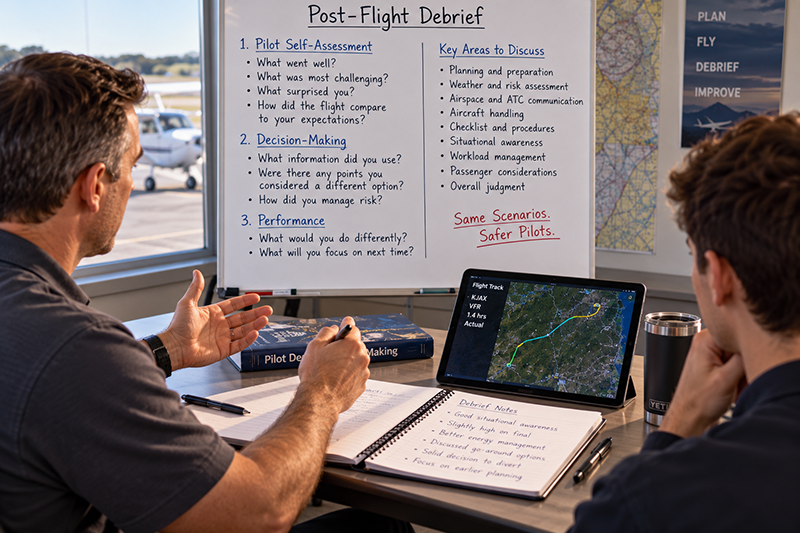 Post-Flight Debrief
1. Pilot Self-Assessment
• What went well?
• What was most challenging?
• What surprised you?
• How did the flight compare
to your expectations?
2. Decision-Making
• What information did you use?
• Were there any points you
considered a different option?
• How did you manage risk?
3. Performance
• What would you do differently?
• What will you focus on next time?
Key Areas to Discuss
• Planning and preparation
• Weather and risk assessment
• Airspace and ATC communication
• Aircraft handling
• Checklist and procedures
• Situational awareness
• Workload management
• Passenger considerations
• Overall judgment
Same Scenarios.
Safer Pilots.
PLAN
FLY
DEBRIEF
IMPROVE
Flight Track
KJAX
VFR
1.4 hrs
Actual
Pilot Making
YETI
Debrief Notes
• Good situational awareness
• Slightly high on final
• Better energy management
• Discussed go-around options
• Solid decision to divert
• Focus on earlier planning